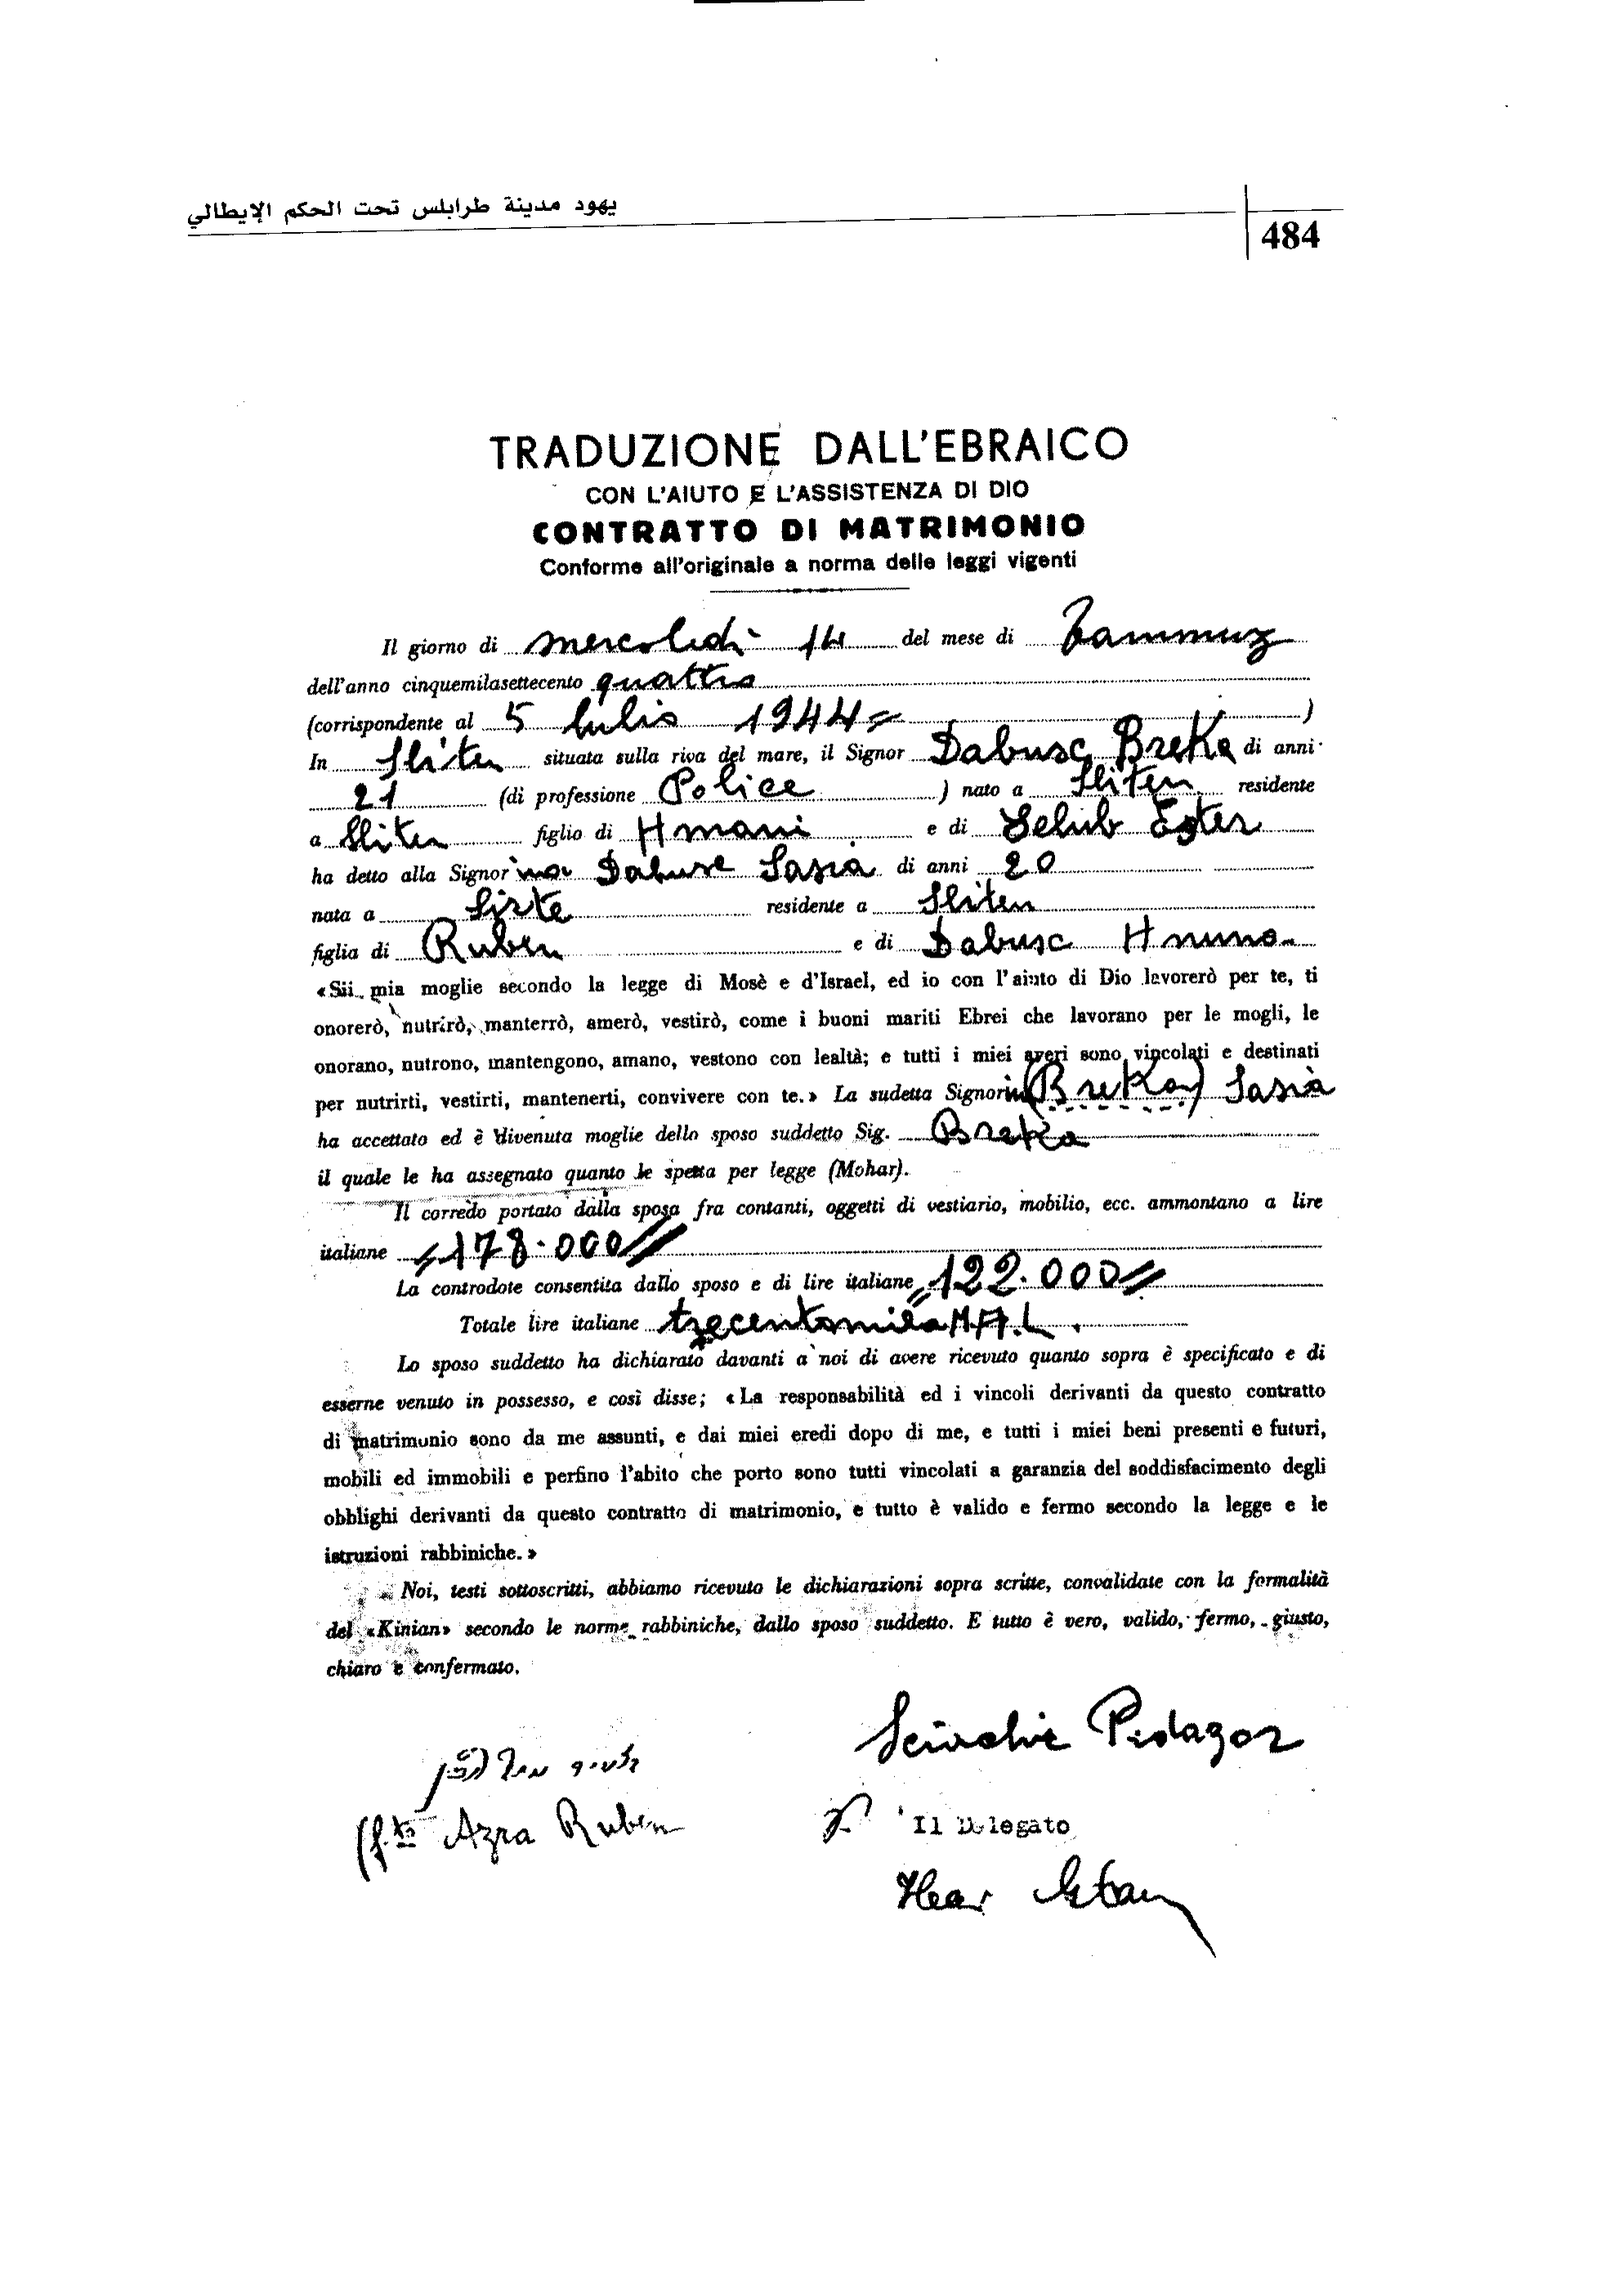 يهود مدينة طرابلس تحت الحكم الإيطالي
484
TRADUZIONE DALL'EBRAICO
CON L'AIUTO E L'ASSISTENZA DI DIO
CONTRATTO DI MATRIMONIO
Conforme all'originale a norma delle leggi vigenti
Il giorno di mercoledi 14 del mese di Tammuz
dell'anno cinquemilasettecento quattro
(corrispondente al 5 Lulio 1944 )
In Sliten situata sulla riva del mare, il Signor Dabusc Breka di anni
21 (di professione Police ) nato a Sliten residente
a Sliten figlio di Hmani e di Selub Ester
ha detto alla Signorina Dabusc Sasia di anni 20
nata a Sirte residente a Sliten
figlia di Ruben e di Dabusc Hnuna
«Sii mia moglie secondo la legge di Mosè e d'Israel, ed io con l'aiuto di Dio lavorerò per te, ti
onorerò, nutrirò, manterrò, amerò, vestirò, come i buoni mariti Ebrei che lavorano per le mogli, le
onorano, nutrono, mantengono, amano, vestono con lealtà; e tutti i miei averi sono vincolati e destinati
per nutrirti, vestirti, mantenerti, convivere con te.» La sudetta Signorina (Breka) Sasia
ha accettato ed è divenuta moglie dello sposo suddetto Sig. Breka
il quale le ha assegnato quanto le spetta per legge (Mohar).
Il corredo portato dalla sposa fra contanti, oggetti di vestiario, mobilio, ecc. ammontano a lire
italiane 178.000//
La controdote consentita dallo sposo e di lire italiane 122.000//
Totale lire italiane trecentomila M.A.L.
Lo sposo suddetto ha dichiarato davanti a noi di avere ricevuto quanto sopra è specificato e di
esserne venuto in possesso, e così disse; «La responsabilità ed i vincoli derivanti da questo contratto
di matrimonio sono da me assunti, e dai miei eredi dopo di me, e tutti i miei beni presenti e futuri,
mobili ed immobili e perfino l'abito che porto sono tutti vincolati a garanzia del soddisfacimento degli
obblighi derivanti da questo contratto di matrimonio, e tutto è valido e fermo secondo la legge e le
istruzioni rabbiniche.»
Noi, testi sottoscritti, abbiamo ricevuto le dichiarazioni sopra scritte, convalidate con la formalità
del «Kinian» secondo le norme rabbiniche, dallo sposo suddetto. E tutto è vero, valido, fermo, giusto,
chiaro e confermato.
Pedagor
Azra Ruben
Il Delegato